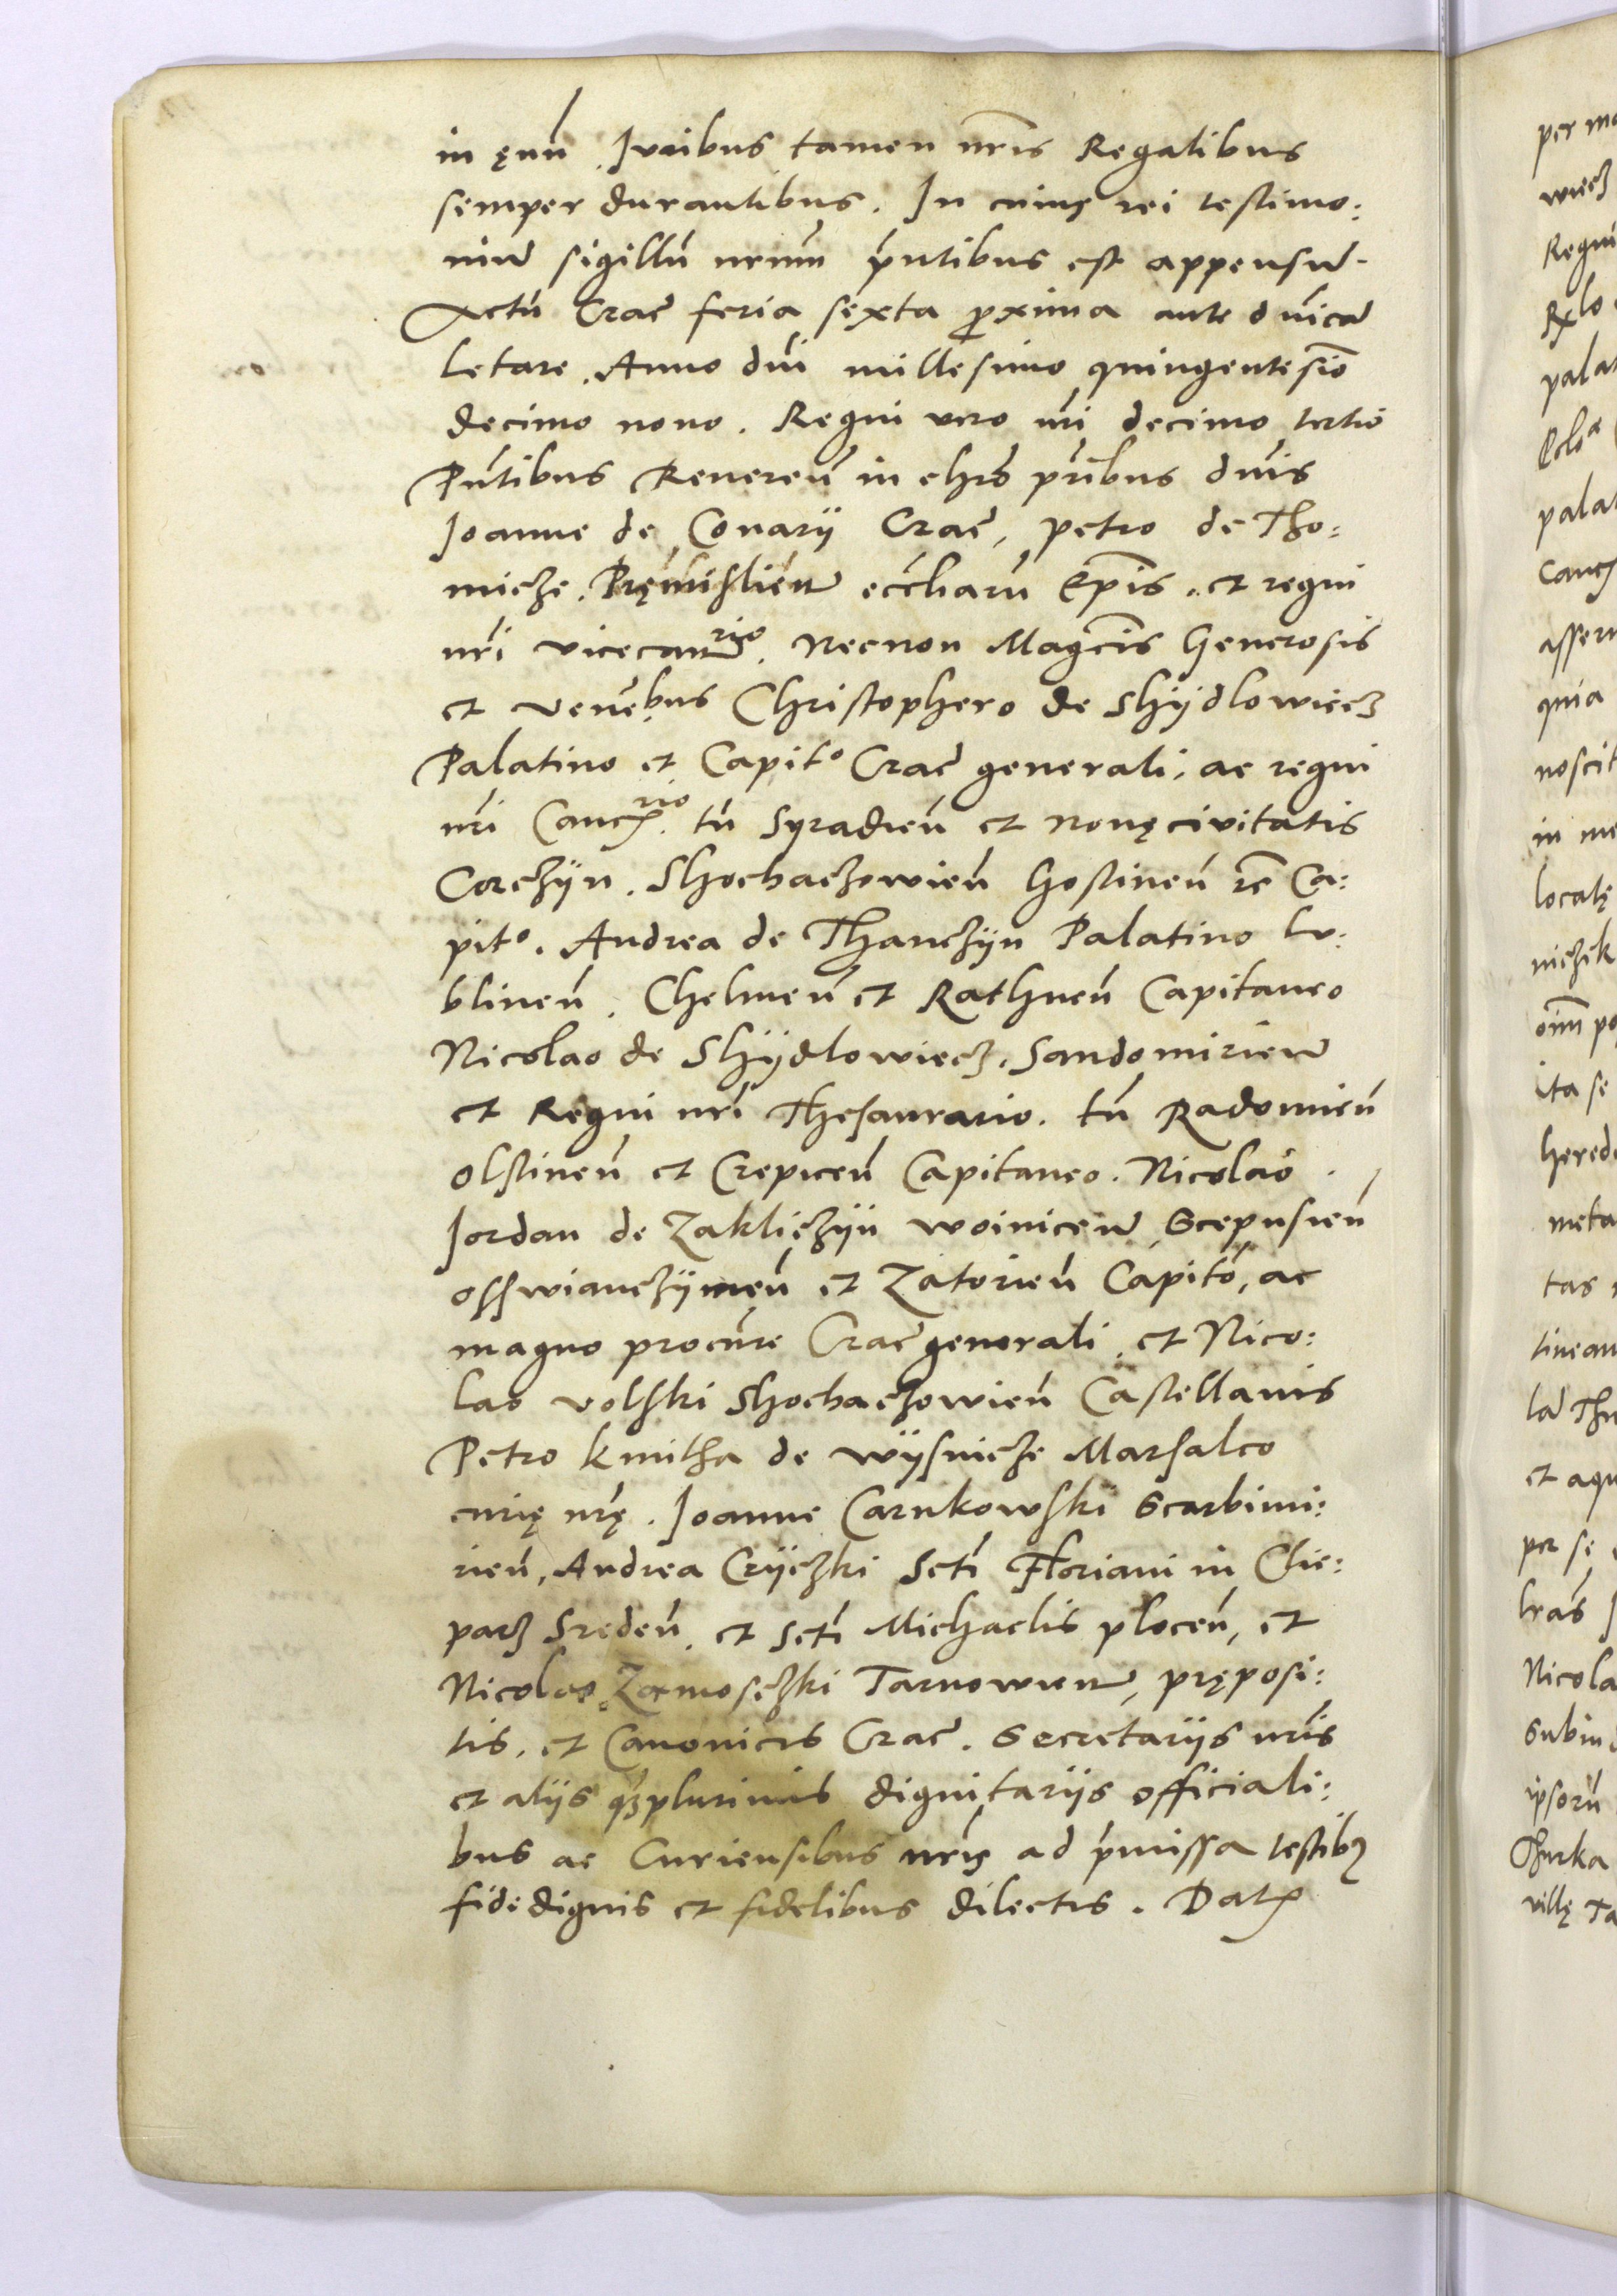 in ęuū. Iuribus tamen nr̄is Regalibus
semper durantibus. In cuius rei testimo:
niū sigillū nrūm pn̄tibus est appensū.
Actū Crac̄ feria sexta proxima ante dn̄icā
Letare. Anno dn̄i millesimo quingentesīo
decimo nono. Regni vero nr̄i decimo tertio
Pn̄tibus Reuereū in chrō pr̄ibus dn̄is
Ioanne de Conarij Crac̄, Petro de Tho:
micze. Pręmisliēn eccl̄iarū Ep̄is. et regni
nr̄i vicecancrio. Necnon Magc̄is Generosis
et venēbus Christophero de Shÿdlowiecz
Palatino et Capito Crac̄ generali, ac regni
nr̄i Cancrio. tū Syradieū et nouę ciuitatis
Corczÿn. Shochaczowieū Gostineū rc̄ Ca:
pito. Andrea de Thanczÿn Palatino Lu:
blineū. Chelmeū et Rathneū Capitaneo
Nicolao de Shÿdlowiecz. Sandomirieū
et Regni nr̄i Thesaurario. tū Radomieū
Olstineū et Crepiceū Capitaneo. Nicolao
Iordan de Zakliczÿn woiniceū, Scepusieū
osswianczÿmeū et Zatorieū Capito, ac
magno procūre Crac̄ generali, et Nico:
lao volski Shochaczowieū Castellanis
Petro kmitha de wÿsnicze Marsalco
curię nr̄ę. Ioanne Carnkowski Scarbimi:
rieū, Andrea Crÿczki Sctī Floriani in Cle:
parz Sredeū. et Sctī Michaelis ploceū, et
Nicolao Zamosczki Tarnowieū, pręposi:
tis, et Canonicis Crac̄. Secretarijs nr̄is
et alijs qz plurimis dignitarijs officiali:
bus ac Curiensibus nr̄is ad pm̄issa testibz
fide dignis et fidelibus dilectis. Dat
per
wiecz
Regni
palat
palat
Canc
asser
quia
noscit
in me
locatę
niczek
oīm po
ita se
hered
meta
tas
tinean
la Thu
et aqu
per se
lrās
Nicola
Subin
ipsorū
Thurka
villę Ta